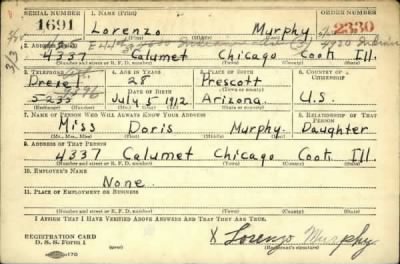 SERIAL NUMBER 1. NAME (Print) ORDER NUMBER
1691 Lorenzo Murphy 2330
2. ADDRESS (Print)
4337 Calumet Chicago Cook Ill.
(Number and street or R. F. D. number) (Town) (County) (State)
3. TELEPHONE 4. AGE IN YEARS 5. PLACE OF BIRTH 6. COUNTRY OF CITIZENSHIP
Drexel 28 Prescott
DATE OF BIRTH
5235 July 5 1912 Arizona. U.S.
7. NAME OF PERSON WHO WILL ALWAYS KNOW YOUR ADDRESS 8. RELATIONSHIP OF THAT PERSON
Miss Doris Murphy. Daughter
(Mr., Mrs., Miss)
9. ADDRESS OF THAT PERSON
4337 Calumet Chicago Cook Ill.
(Number and street or R. F. D. number) (Town) (County) (State)
10. EMPLOYER'S NAME
None.
11. PLACE OF EMPLOYMENT OR BUSINESS
(Number and street or R. F. D. number) (Town) (County) (State)
I AFFIRM THAT I HAVE VERIFIED ABOVE ANSWERS AND THAT THEY ARE TRUE.
REGISTRATION CARD
D. S. S. Form 1
X Lorenzo Murphy
(Registrant's signature)